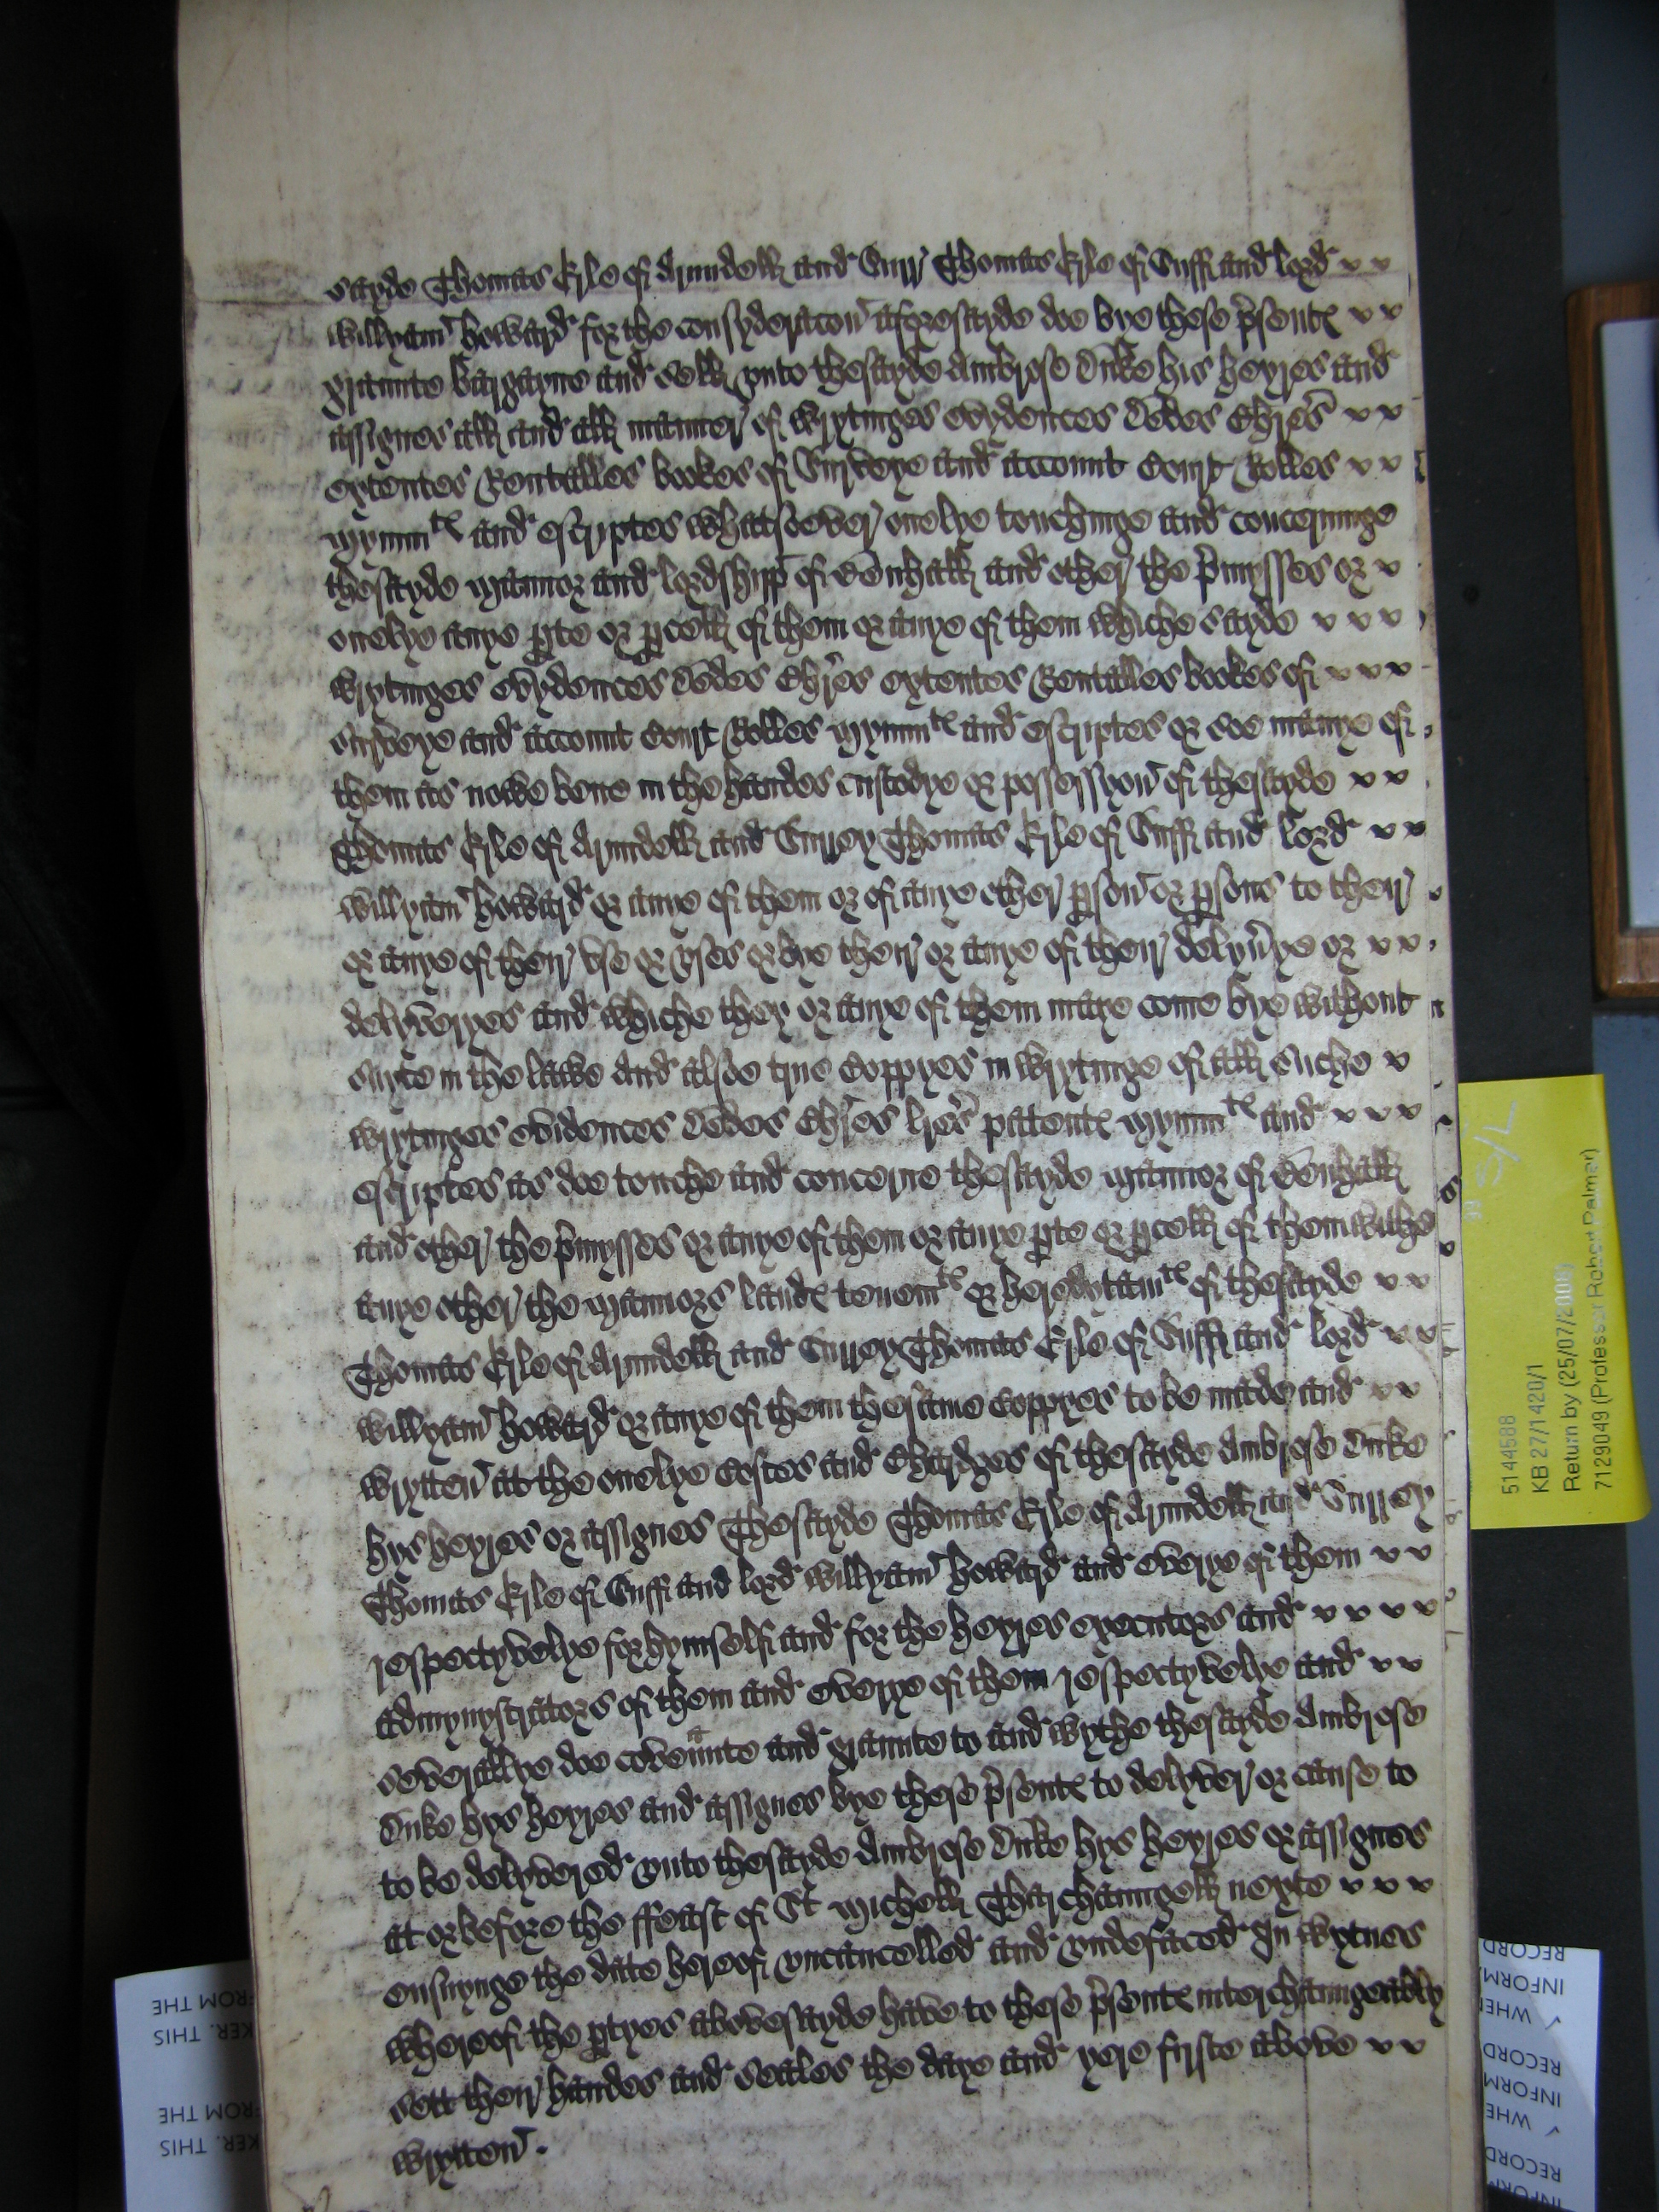 sayde Thomas Erle of Arundell and Surr Thomas Erle of Suff and lord
Willyam Howard for the consyderacon aforesayde doe bye these p'sentes
graunte bargayne and sell vnto thesayde Ambrose Duke his heyres and
assignes all and all manner of wrytinges evydences Dedes Chres
extentes Rentalles bookes of Surveye and accompt Court Rolles
mynimtes and escriptes whatsoever onelye touchinge and concerninge
thesayde mannor and lordshipp of Benhall and other the p'mysses or
onelye anye pte or pcell of them or anye of them whiche sayde
wrytinges evydences Dedes Chres extentes Rentalles bookes of
surveye and accompt Court Rolles mynimtes and escriptes or soe manye of
them as nowe bene in the handes custodye or possessyon of thesayde
Thomas Erle of Arundell and Surrey Thomas Erle of Suff and lord
Willyam Howard or anye of them or of anye other pson or psons to their
or anye of their vse or vses or bye their or anye of their delyv'ye or
delyveryes and whiche they or anye of them maye come bye without
suyte in the lawe And alsoe true Coppyes in wrytinge of all suche
wrytinges evidences Dedes Chres lres patentes mynimtes and
escriptes as doe touche and concerne thesayde mannor of Benhall
and other the p'mysses or anye of them or anye pte or pcell of them withe
anye other the mannors landes tenemtes or heredytamtes of thesayde
Thomas Erle of Arundell and Surrey Thomas Erle of Suff and lord
Willyam Howard or anye of them thesame Coppyes to be made and
wrytten at the onelye Costes and Chardges of thesayde Ambrose Duke
hys heyres or assignes Thesayde Thomas Erle of Arundell and Surrey
Thomas Erle of Suff and lord Willyam Howard and everye of them
respectyvelye for hymself and for the heyres executors and
admynystrators of them and everye of them respectyvelye and
severallye doe covennte and graunte to and wythe thesayde Ambrose
Duke hys heyres and assignes bye these p'sentes to delyver or cause to
to be delyvered vnto thesayde Ambrose Duke hys heyres or assignes
at or before the ffeast of St Michell Tharchaungell nexte
ensuynge the date hereof vncancelled and vndefaced In wytnes
whereof the ptyes abovesayde have to these p'sentes interchaungeably
sett their handes and seales the daye and yere firste above
wrytten.
5144588
KB 27/1420/1
Return by (25/07/2008)
7129049 (Professor Robert Palmer)